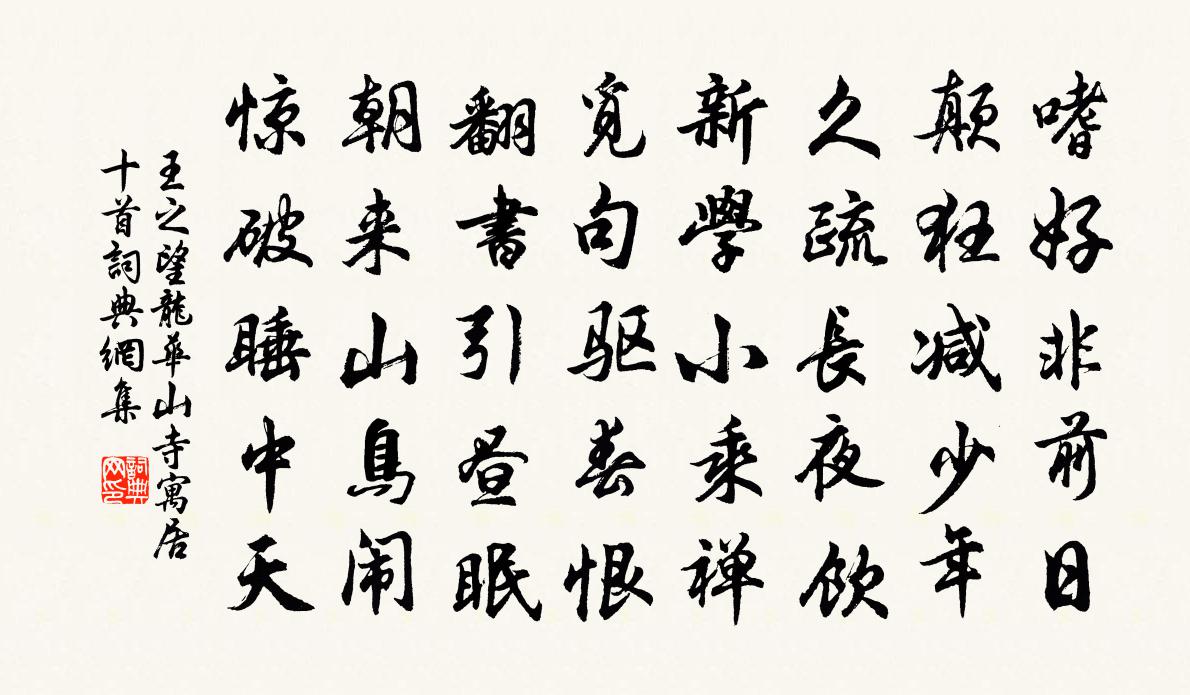 嗜好非前日
颠狂减少年
久疏長夜飲
新學小乘禅
觅句驱春恨
翻書引昼眠
朝来山鳥闹
惊破睡中天
王之望龍華山寺寓居
十首詞典網集
詞典网印